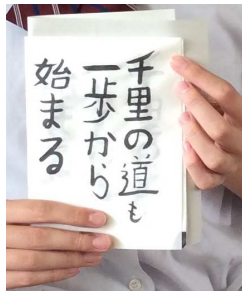 千里の道も
一歩から
始まる